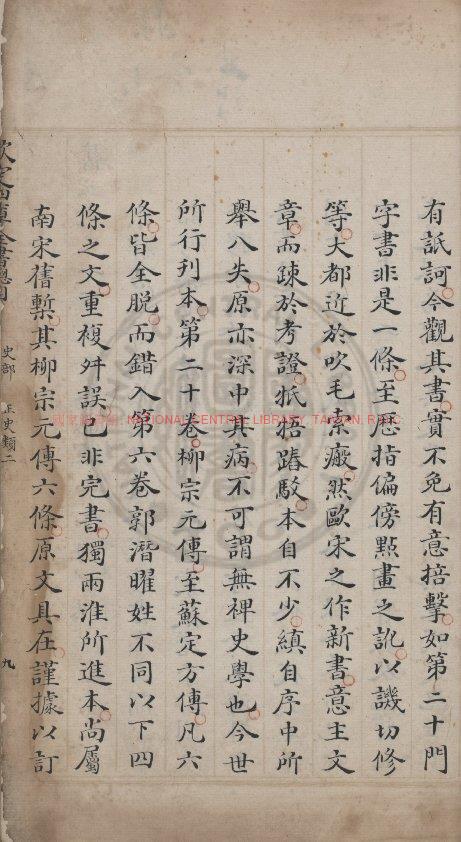 有詆訶今觀其書實不免有意掊擊如第二十門
字書非是一條至歷指偏傍點畫之訛以譏切修
等大都近於吹毛索瘢然歐宋之作新書意主文
章而疎於考證牴牾踳駮本自不少縝自序中所
舉八失原亦深中其病不可謂無裨史學也今世
所行刊本第二十卷柳宗元傳至蘇定方傳凡六
條皆全脱而錯入第六卷郭潛曜姓不同以下四
條之文重複舛誤已非完書獨兩淮所進本尚屬
南宋舊槧其柳宗元傳六條原文具在謹據以訂
欽定四庫全書總目
史部 正史類二
九
國家圖書館 NATIONAL CENTRAL LIBRARY, TAIWAN, R.O.C.